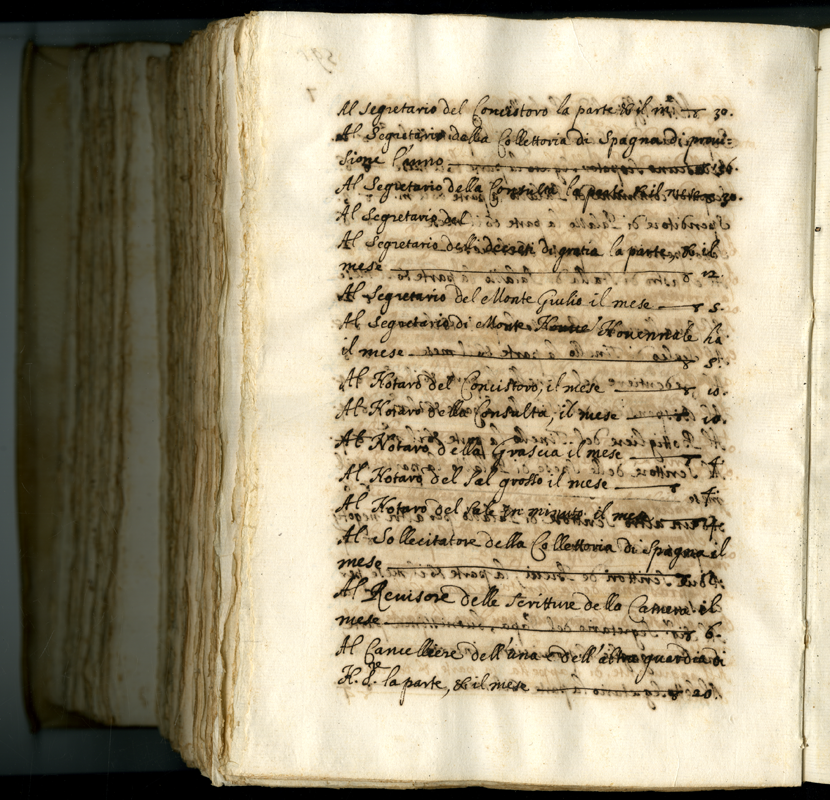 Al Segretario del Concistoro la parte, & il m.e — 30.
Al Segretario della Collettoria di Spagna di provi=
sione l'anno
Al Segretario della Consulta la parte & il mese 30.
Al Segretario del
Al Segretario de li decreti di gratia la parte, & il
mese — 12.
Al Segretario del Monte Giulio il mese — 5.
Al Segretario di Monte Novennale ha
il mese — 5.
Al Notaro del Concistoro, il mese — 10.
Al Notaro della Consulta, il mese — 10.
Al Notaro della Grascia il mese
Al Notaro del Sal grosso il mese — 4.
Al Notaro del Sale in minuto il mese 4.
Al Sollecitatore della Collettoria di Spagna il
mese
Al Revisore delle scritture della Camera il
mese — 6.
Al Cancelliere dell'una e dell'altra guardia di
N. S.re la parte, & il mese — 20.